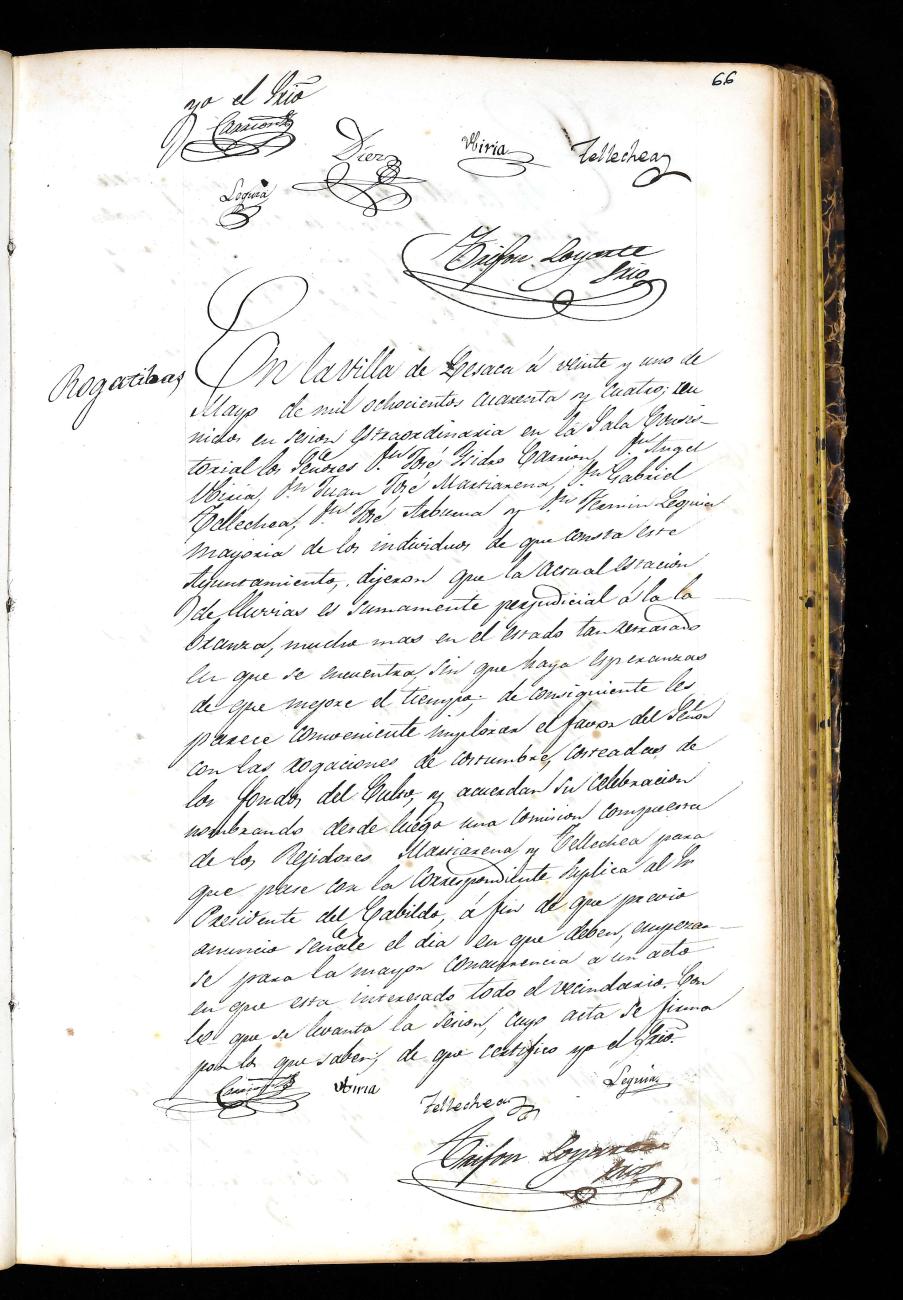 66
yo el Srio
Carrion
Diez
Ubiria
Tellechea
Leguia
Trifon Loyarte
Srio
Rogatibas
En la villa de Lesaca á veinte y uno de
Mayo de mil ochocientos cuarenta y cuatro; reu
nidos en sesion estraordinaria en la Sala Consis-
torial los Señores Dn José Ysidro Carrion, Dn Angel
Ubiria, Dn Juan José Martiarena, Dn Gabriel
Tellechea, Dn José Arburua y Dn Fermin Leguia
mayoria de los individuos de que consta este
Ayuntamiento, dijeron que la actual estacion
de lluvias es sumamente perjudicial á la la
branza, mucho mas en el estado tan retrasado
en que se encuentra, sin que haya esperanzas
de que mejore el tiempo; de consiguiente les
parece conveniente implorar el favor del Señor
con las rogaciones de costumbre, costeadas de
los fondos del Culto, y acuerdan su celebracion
nombrando desde luego una comision compuesta
de los Rejidores Martiarena y Tellechea para
que pase con la correspondiente suplica al Sr
Presidente del Cabildo, á fin de que previo
anuncio señale el dia en que deben empezar
se para la mayor concurrencia a un acto
en que esta interesado todo el vecindario. Con
lo que se levanta la sesion, cuyo acta se firma
por los que saben, de que certifico yo el Srio.
Carrion
Ubiria
Tellechea
Leguia
Trifon Loyarte
Srio